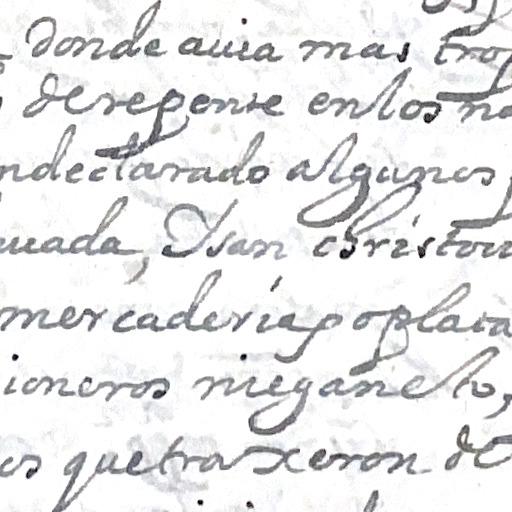 donde auia mas trop
de repente en los na
ndeclarado algunos
uada, Y san christou
mercaderias o plata
ioneros niegan elo,
os que traxeron de